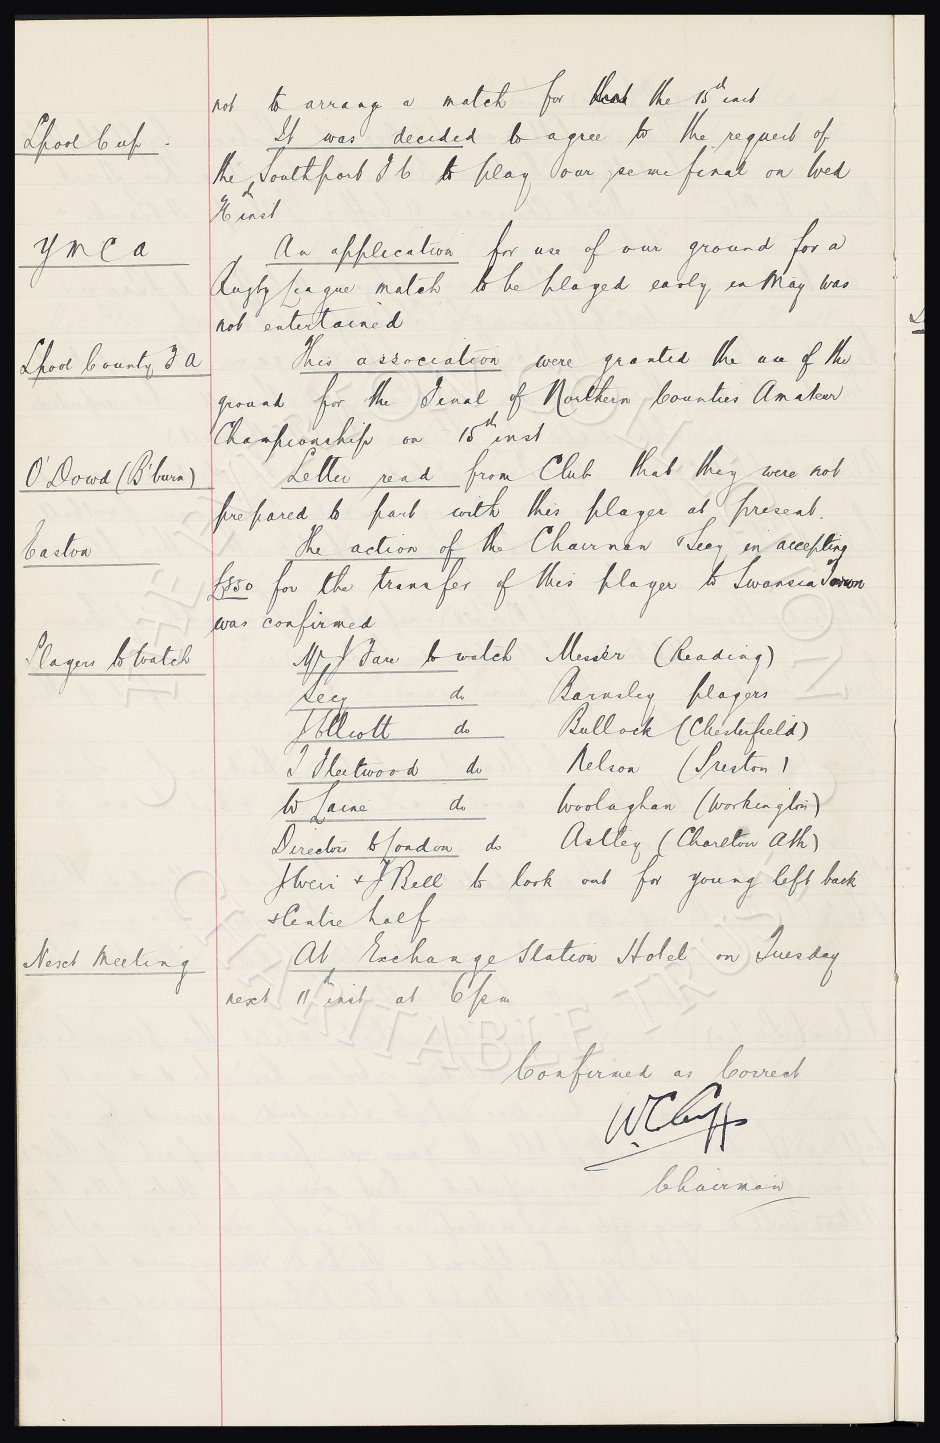 not to arrange a match for the 15th inst
Lpool Cup. It was decided to agree to the request of
the Southport F C to play our semi final on Wed
inst
Y M C A An application for use of our ground for a
Rugby League match to be played early in May was
not entertained
Lpool County F A This association were granted the use of the
ground for the Final of Northern Counties Amateur
Championship on 15th inst
O'Dowd (B'burn) Letter read from Club that they were not
prepared to part with this player at present.
Easton The action of the Chairman & Secy in accepting
£550 for the transfer of this player to Swansea Town
was confirmed
Players to Watch Mr J Fare to watch Messer (Reading)
Secy do Barnsley players
J Elliott do Bullock (Chesterfield)
T Fleetwood do Nelson (Preston)
W Laine do Woolaghan (Workington)
Directors to London do Astley (Charlton Ath)
J Weir & J Bell to look out for young left back
& Centre half
Next Meeting At Exchange Station Hotel on Tuesday
next 11th inst at 6 pm
Confirmed as Correct
W C Cuff
Chairman
THE EVERTON COLLECTION
CHARITABLE TRUST